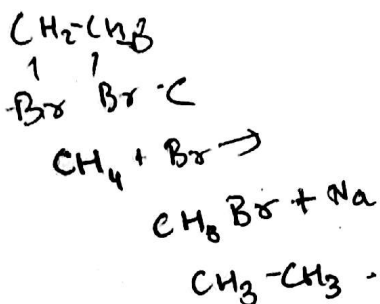 CH₂-CH₂B
Br Br · C
CH₄ + Br →
CH₃ Br + Na
CH₃-CH₃ ·